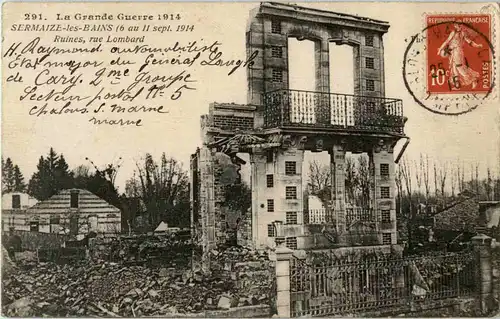 291. La Grande Guerre 1914
SERMAIZE-les-BAINS (6 au 11 sept. 1914
Ruines, rue Lombard
H. Raymond automobiliste
État major du Général Langle
de Cary 2me Groupe
Secteur postal N° 5
Chalons s. Marne
marne
10